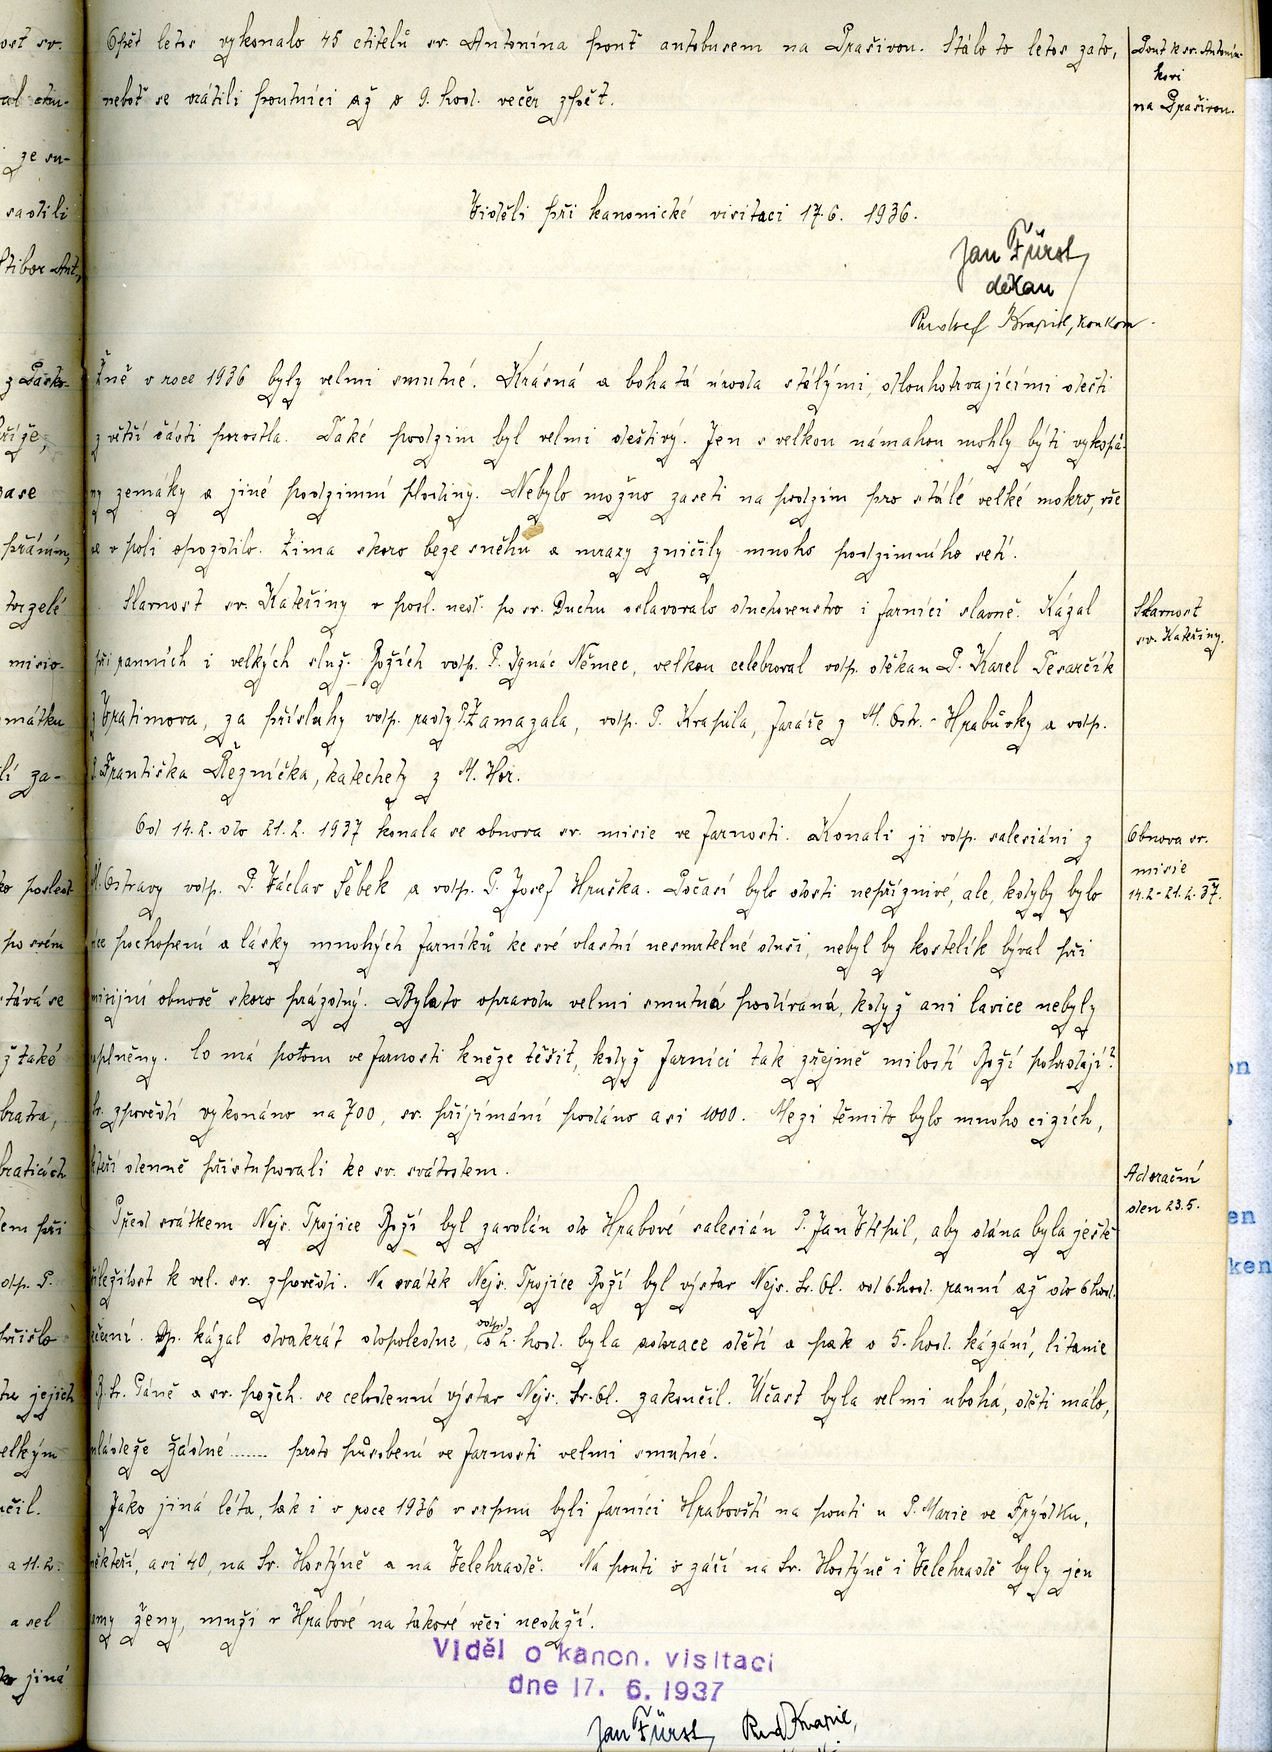 Opět letos vykonalo 45 ctitelů sv. Antonína pouť autobusem na Prašivou. Stálo to letos zato,
neboť se vrátili poutníci až o 9. hod. večer zpět.
Pouť k sv. Antonín-
kovi
na Prašivou.
Viděli při kanonické visitaci 17.6. 1936.
Jan Fürst
děkan
Žně v roce 1936 byly velmi smutné. Krásná a bohatá úroda stálými, dlouhotrvajícími dešti
z větší části porostla. Také podzim byl velmi deštivý. Jen s velkou námahou mohly býti vykopá-
ny zemáky a jiné podzimní plodiny. Nebylo možno zaseti na podzim pro stálé velké mokro, vše
se v poli opozdilo. Zima skoro beze sněhu a mrazy zničily mnoho podzimního setí.
Slavnost sv. Kateřiny v posl. neď. po sv. Duchu oslavovalo duchovenstvo i farníci slavně. Kázal
při ranních i velkých služ. Božích vdp. P. Ignác Němec, velkou celebroval vdp. děkan P. Karel Tesarčík
z Vratimova, za přísluhy vdp. rady P. Zamazala, vdp. P. Krapila, faráře z M. Ostr.- Hrabůvky a vdp.
P. Františka Řezníčka, katechety z M. Hor.
Slavnost
sv. Kateřiny.
Od 14.2. do 21.2. 1937 konala se obnova sv. misie ve farnosti. Konali ji vdp. salesiáni z
M. Ostravy vdp. P. Václav Šebek a vdp. P. Josef Hruška. Počasí bylo dosti nepříznivé, ale, kdyby bylo
více pochopení a lásky mnohých farníků ke své vlastní nesmrtelné duši, nebyl by kostelík býval při
misijní obnově skoro prázdný. Byla to opravdu velmi smutná podívaná, když ani lavice nebyly
naplněny. Co má potom ve farnosti kněze těšit, když farníci tak zřejmě milostí Boží pohrdají?
Sv. zpovědí vykonáno na 700, sv. přijímání podáno asi 1000. Mezi těmito bylo mnoho cizích,
kteří denně přistupovali ke sv. svátostem.
Obnova sv.
misie
14.2.-21.2.37.
Před svátkem Nejs. Trojice Boží byl zavolán do Hrabové salesián P. Jan Vtípil, aby dána byla ještě
příležitost k vel. sv. zpovědi. Na svátek Nejs. Trojice Boží byl výstav Nejs. Sv. Ol. od 6 hod. ranní až do 6 hod.
večerní. Dp. kázal dvakrát dopoledne, odpol. o 2. hod. byla adorace dětí a pak o 5. hod. kázání, litanie
B. Sr. Páně a sv. požeh. se celodenní výstav Nejs. Sv. Ol. zakončil. Účast byla velmi ubohá, dětí málo,
mládeže žádné...... proto působení ve farnosti velmi smutné.
Adorační
den 23.5.
Jako jiná léta, tak i v roce 1936 v srpnu byli farníci Hrabovští na pouti u P. Marie ve Frýdku,
někteří, asi 40, na Sv. Hostýně a na Velehradě. Na pouti v září na Sv. Hostýně i Velehradě byly jen
samy ženy, muži v Hrabové na takové věci nedrží.
Viděl o kanon. visitaci
dne 17. 6. 1937
Jan Fürst